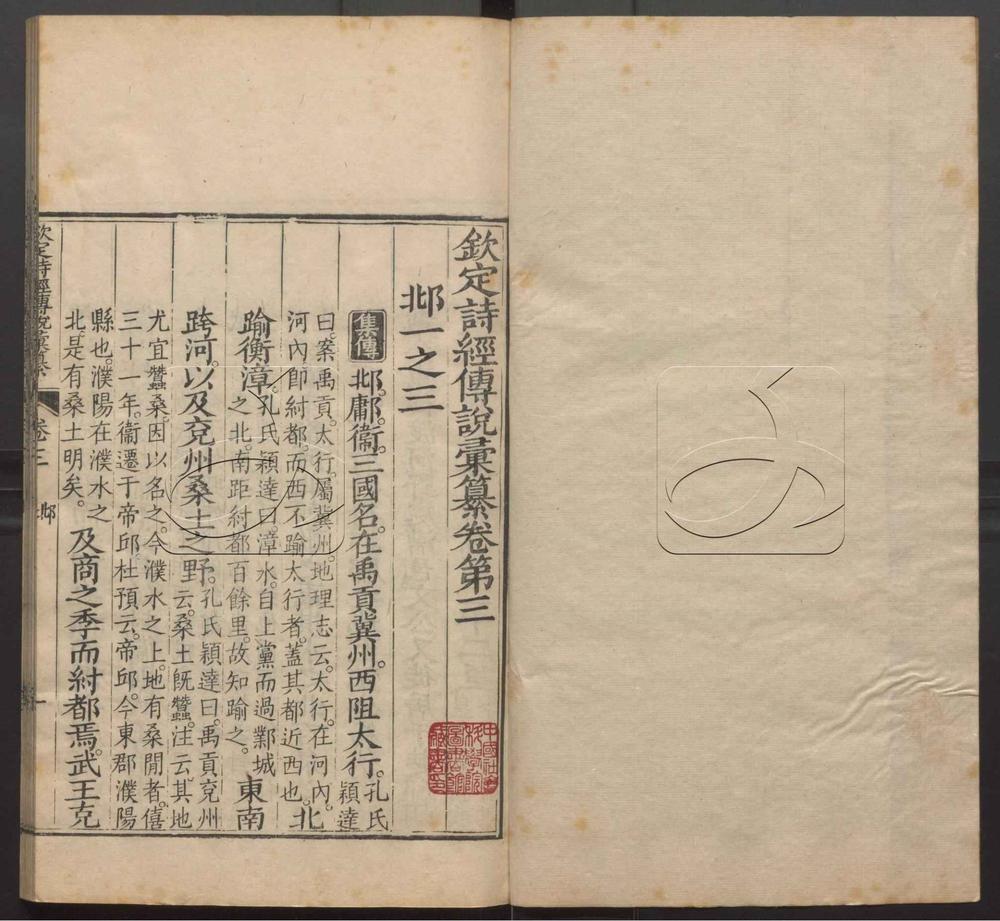 欽定詩經傳說彙纂卷第三
邶一之三
集傳 邶鄘衞三國名。在禹貢冀州。西阻太行。孔氏穎達
曰。案禹貢。太行屬冀州。地理志云。太行。在河內。
河內卽紂都。而西不踰太行者。蓋其都近西也。北
踰衡漳。孔氏穎達曰。漳水。自上黨而過鄴城
之北。南距紂都百餘里。故知踰之。東南
跨河。以及兗州桑土之野。孔氏穎達曰。禹貢兗州
云。桑土旣蠶。注云。其地
尤宜蠶桑。因以名之。今濮水之上。地有桑閒者。僖
三十一年。衞遷于帝邱。杜預云。帝邱。今東郡濮陽
縣也。濮陽在濮水之
北。是有桑土明矣。及商之季而紂都焉。武王克
欽定詩經傳說彙纂 卷三 邶 一
中國社會科學院圖書館藏書印